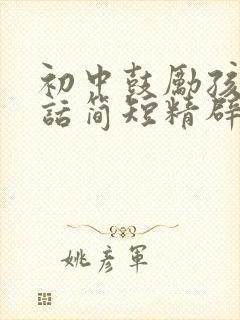 初中鼓励孩
话简短精辟
姚彦军